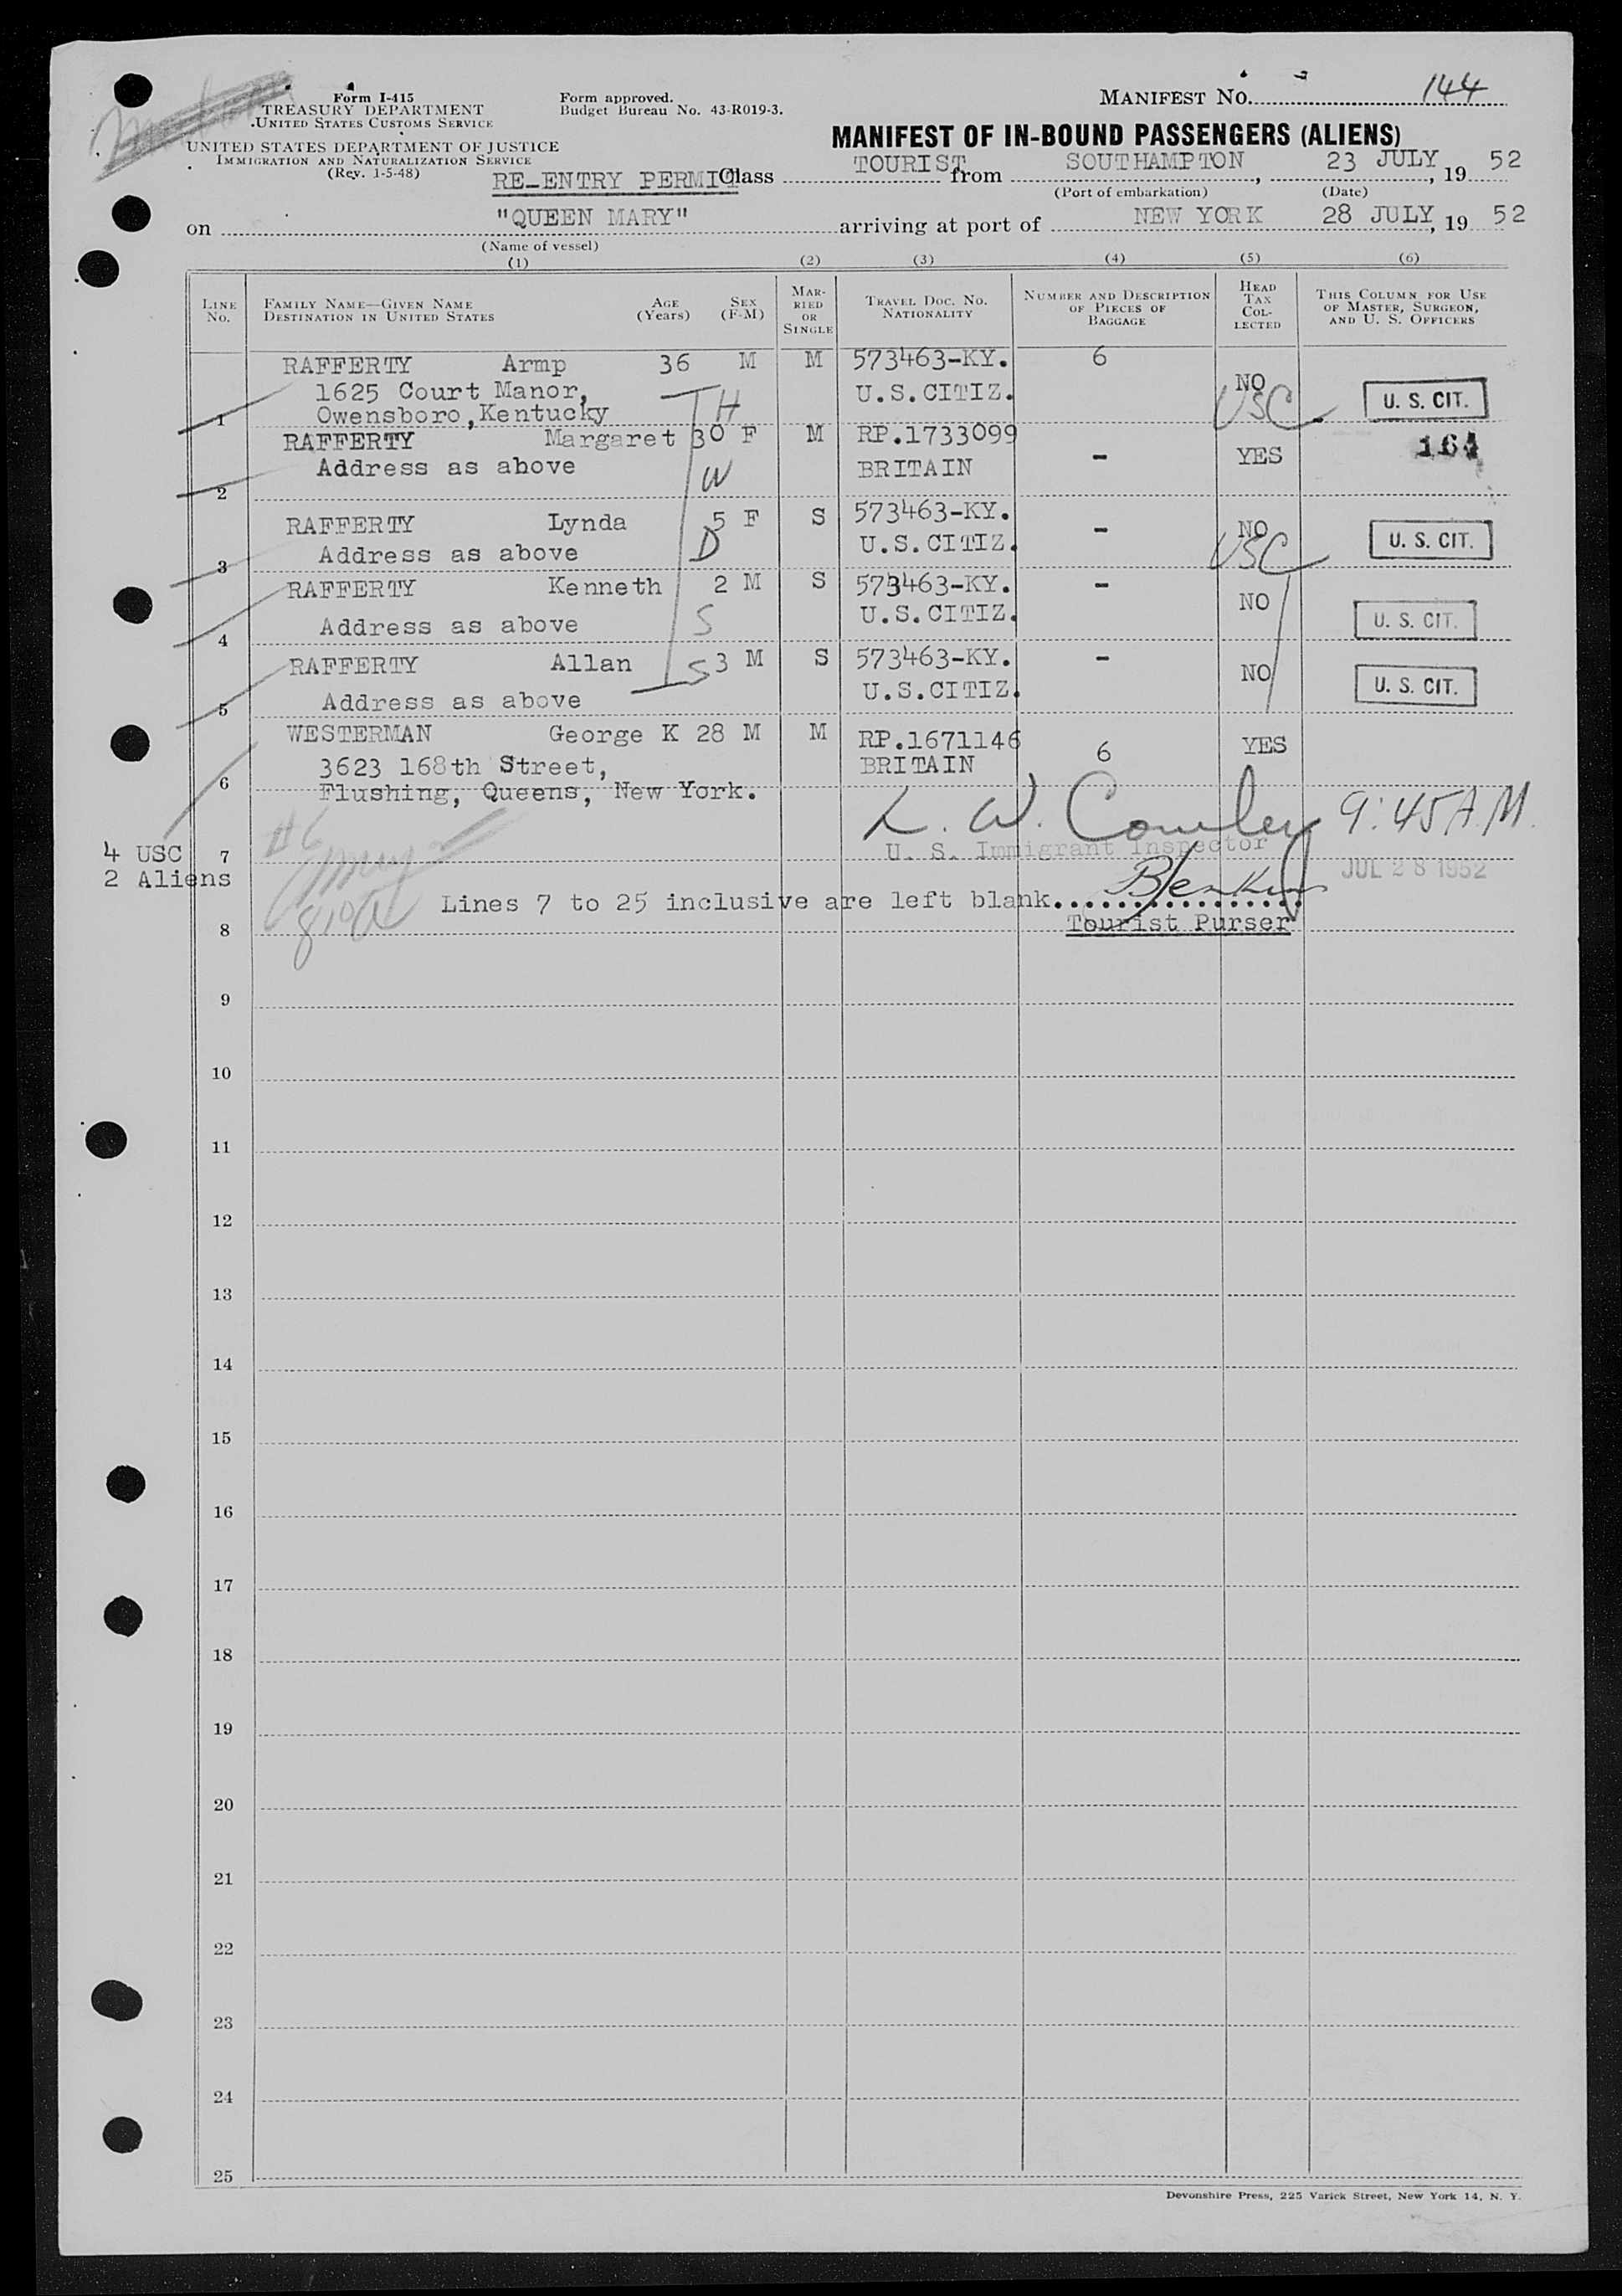 Form I-415
TREASURY DEPARTMENT
UNITED STATES CUSTOMS SERVICE
UNITED STATES DEPARTMENT OF JUSTICE
IMMIGRATION AND NATURALIZATION SERVICE
(Rev. 1-5-48)
Form approved.
Budget Bureau No. 43-R019-3.
MANIFEST NO. 144
MANIFEST OF IN-BOUND PASSENGERS (ALIENS)
RE-ENTRY PERMIT Class TOURIST from SOUTHAMPTON, 23 JULY, 19 52
(Port of embarkation) (Date)
on "QUEEN MARY" arriving at port of NEW YORK 28 JULY, 19 52
(Name of vessel)
(1) (2) (3) (4) (5) (6)
LINE NO. FAMILY NAME—GIVEN NAME DESTINATION IN UNITED STATES AGE (Years) SEX (F-M) MARRIED OR SINGLE TRAVEL DOC. NO. NATIONALITY NUMBER AND DESCRIPTION OF PIECES OF BAGGAGE HEAD TAX COLLECTED THIS COLUMN FOR USE OF MASTER, SURGEON, AND U. S. OFFICERS
RAFFERTY Armp 36 M M 573463-KY. 6
1625 Court Manor, U.S.CITIZ. NO USC U. S. CIT.
1 Owensboro, Kentucky H
RAFFERTY Margaret 30 F M RP.1733099 - YES 164
Address as above W BRITAIN
2
RAFFERTY Lynda 5 F S 573463-KY. - NO
3 Address as above D U.S.CITIZ. USC U. S. CIT.
RAFFERTY Kenneth 2 M S 573463-KY. - NO
4 Address as above S U.S.CITIZ. U. S. CIT.
RAFFERTY Allan S 3 M S 573463-KY. - NO
5 Address as above U.S.CITIZ. U. S. CIT.
WESTERMAN George K 28 M M RP.1671146 6 YES
3623 168th Street, BRITAIN
6 Flushing, Queens, New York.
#6
L. W. Cowley 9:45 A.M.
4 USC 7 U. S. Immigrant Inspector
2 Aliens JUL 28 1952
Lines 7 to 25 inclusive are left blank................
8 Tourist Purser
9
10
11
12
13
14
15
16
17
18
19
20
21
22
23
24
25
Devonshire Press, 225 Varick Street, New York 14, N. Y.